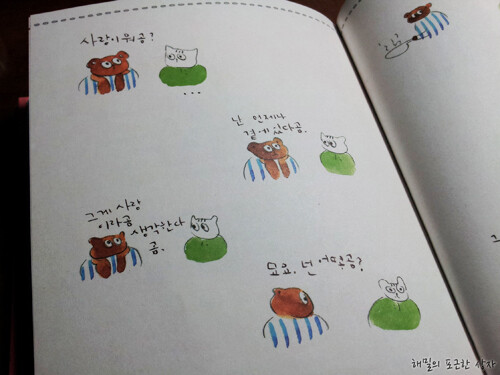 사랑이 뭐곰?
...
난 언제나
곁에 있다곰.
그게 사랑
이라곰
생각한다
곰.
묘요, 넌 어떻곰?
해밀의 포근한 상자